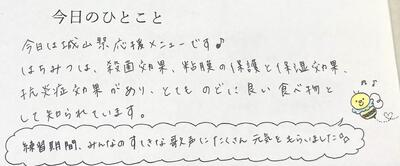 今日のひとこと
今日は城山祭応援メニューです♪
はちみつは、殺菌効果、粘膜の保護と保湿効果、
抗炎症効果があり、とても のどに良い食べ物と
して知られています。
練習期間、みんなのすてきな歌声にたくさん元気をもらいました♪